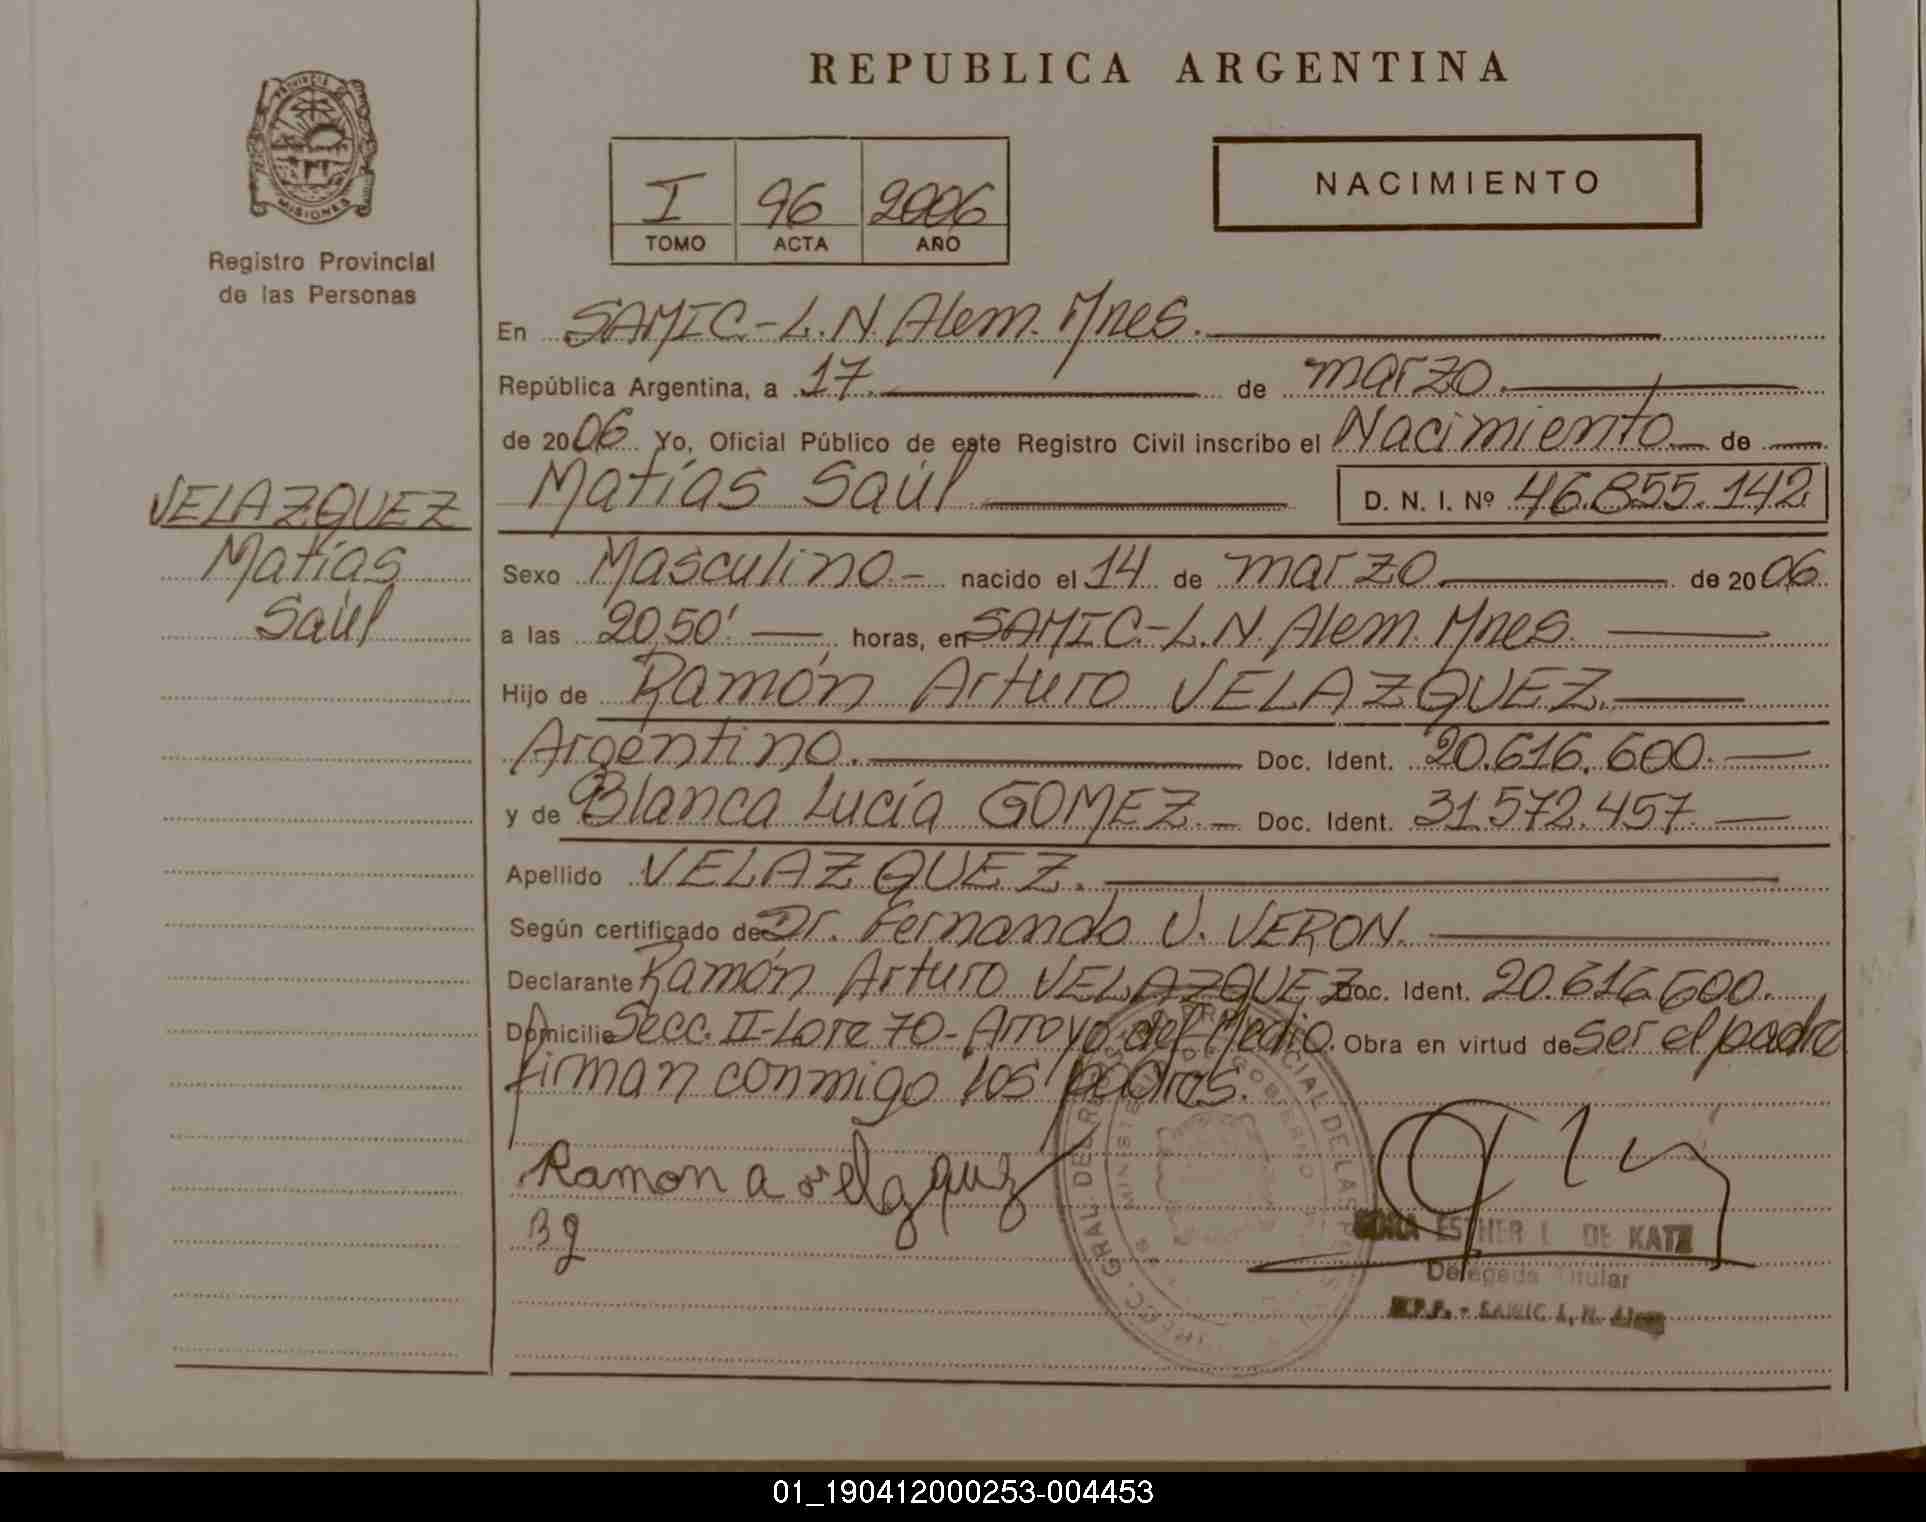 REPUBLICA ARGENTINA
PROVINCIA DE
MISIONES
Registro Provincial
de las Personas
I 96 2006
TOMO ACTA AÑO
NACIMIENTO
En SAMIC-L.N. Alem. Mnes.
República Argentina, a 17 de marzo
de 2006 Yo, Oficial Público de este Registro Civil inscribo el Nacimiento de
Matías Saúl D. N. I. Nº 46.855.142
VELAZQUEZ
Matías
Saúl
Sexo Masculino.- nacido el 14 de marzo de 2006
a las 20,50' horas, en SAMIC-L.N. Alem. Mnes.
Hijo de Ramón Arturo VELAZQUEZ.
Argentino. Doc. Ident. 20.616.600.
y de Blanca Lucía GOMEZ.- Doc. Ident. 31.572.457
Apellido VELAZQUEZ.
Según certificado de Dr. Fernando V. VERON.
Declarante Ramón Arturo VELAZQUEZ Doc. Ident. 20.616.600.
Domicilio Secc. II-Lote 70-Arroyo del Medio. Obra en virtud de ser el padre
firman conmigo los padres.
Ramon a velazquez
B g
ESTHER L DE KATZ
Delegada Titular
R.P.P. - SAMIC L. N. Alem
01_190412000253-004453